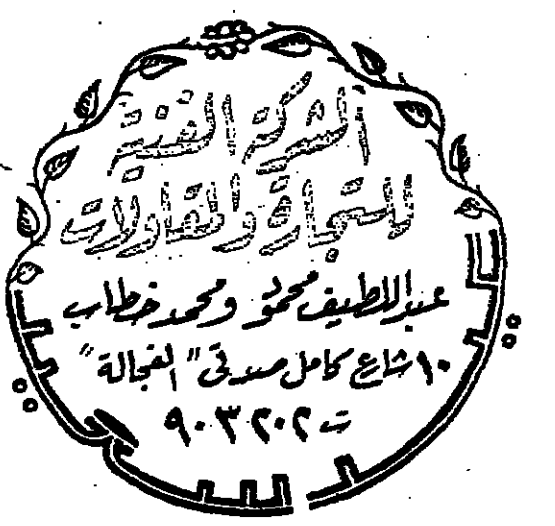 الشركة الفنية
للتجارة والمقاولات
عبداللطيف محمود ومحمد خطاب
١٠ شارع كامل صدقى "الفجالة"
ت ٩٠٣٢٠٢